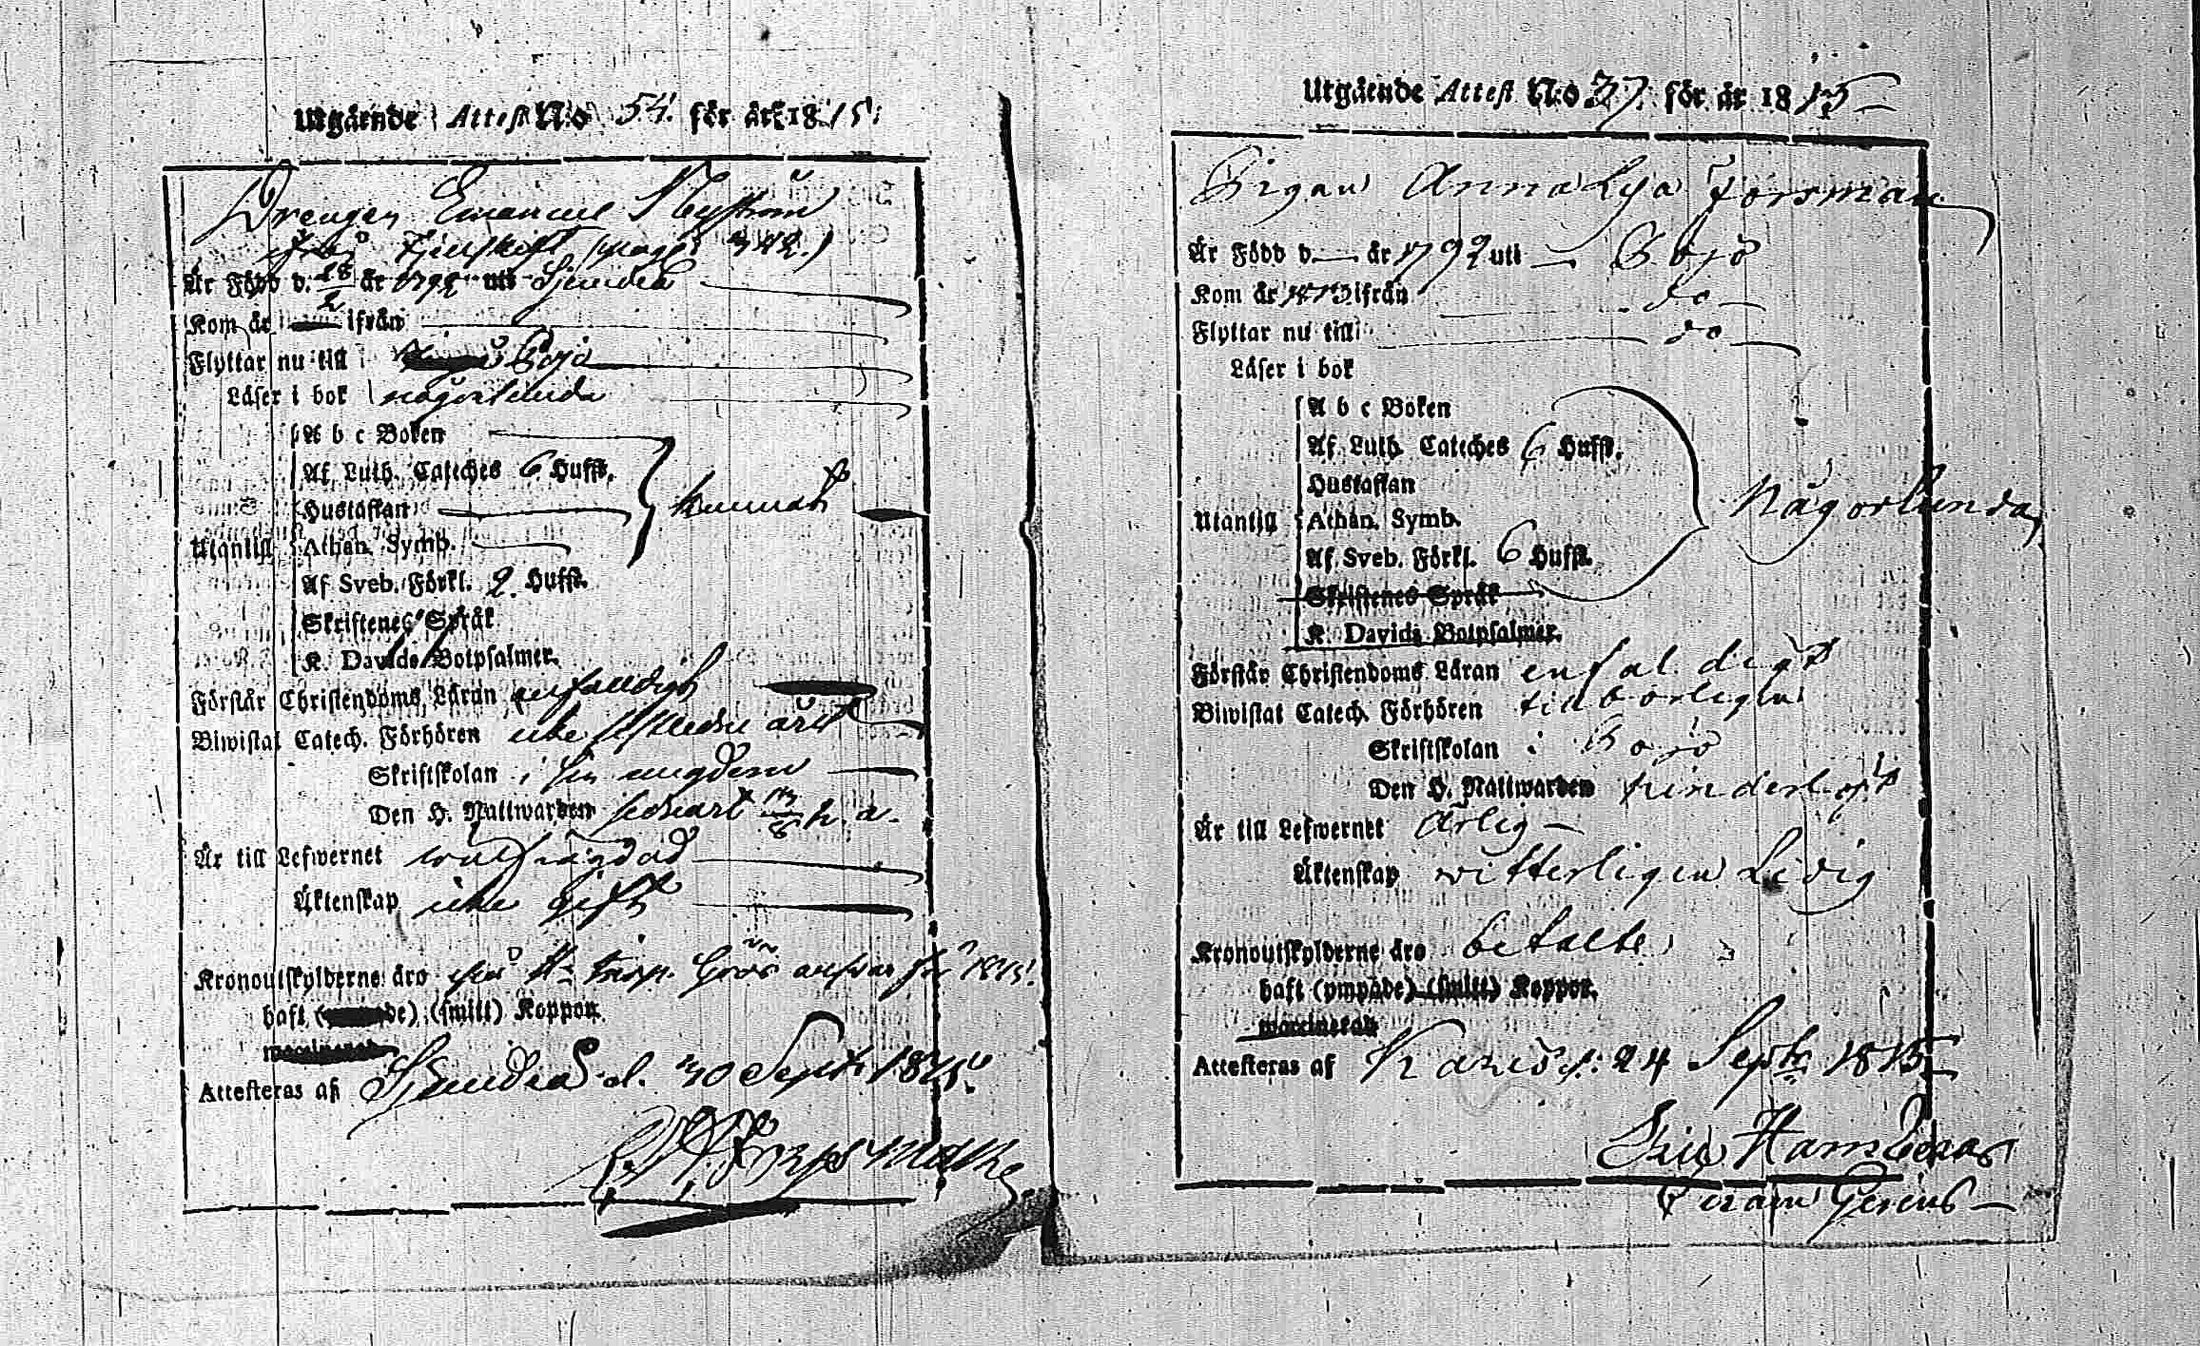 Utgående Attest N:o 54. för år 1815.
Drengen Emanuel Nyström
från Fjellskift (pag: 342.)
Är Född d. 28/2 år 1792 uti Sjundeå
Kom år ifrån
Flyttar nu till Pojo
Läser i bok någorlunda
A b c Boken
Af Luth. Cateches 6 Hufst.
Hustaflan
Utantill
Athan. Symb.
Af Sveb. Förkl. 2. Hufst.
Skriftenes Språk
K. Davids Botpsalmer.
Förstår Christendoms Läran enfaldigt
Biwistat Catech. Förhören icke året
Skriftskolan i sin ungdom
Den H. Nattwarden h. a.
Är till Lefwernet wälfrägdad
Äktenskap icke gift
Kronoutskylderne äro för 1815.
haft (smitt) Koppor.
Attesteras af Sjundeå d. 30 Sept. 1815.
Utgående Attest N:o 37. för år 1815
Pigan Anna Lisa Forsman
Är Född d. år 1792 uti Pojo
Kom år 1813 ifrån do
Flyttar nu till do
Läser i bok
A b c Boken
Af Luth. Cateches 6 Hufst.
Hustaflan
Utantill
Athan. Symb.
Någorlunda
Af Sveb. Förkl. 6 Hufst.
Skriftenes Språk
K. Davids Botpsalmer.
Förstår Christendoms Läran enfaldigt
Biwistat Catech. Förhören tillbörligen
Skriftskolan i Pojo
Den H. Nattwarden hinderlöst
Är till Lefwernet Ärlig
Äktenskap witterligen Ledig
Kronoutskylderne äro betalte
haft (ympade) (smitt) Koppor.
Attesteras af Karis d. 24 Sept. 1815